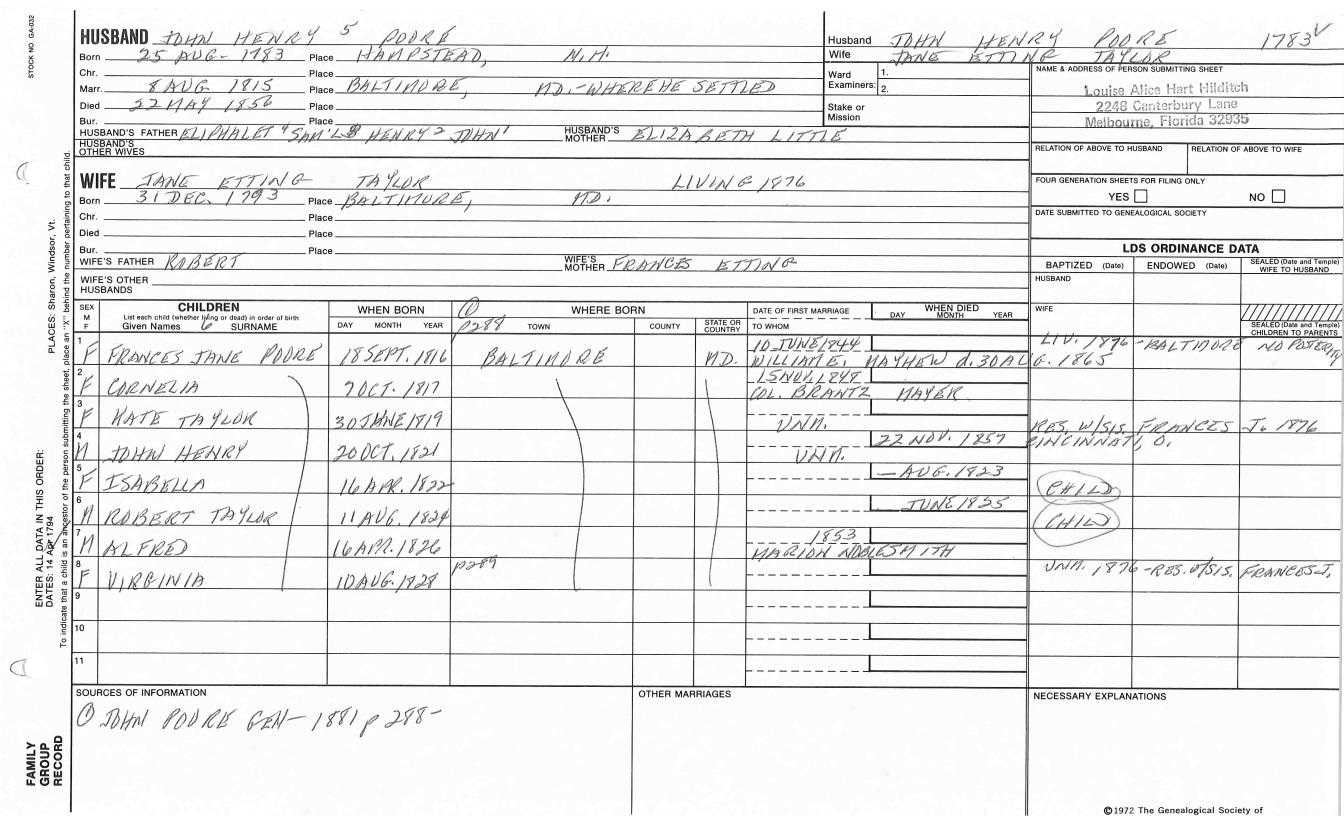 STOCK NO GA-032
HUSBAND JOHN HENRY 5 POORE
Born 25 AUG- 1783 Place HAMPSTEAD, N.H.
Chr. Place
Marr. 8 AUG 1815 Place BALTIMORE, MD.-WHERE HE SETTLED
Died 22 MAY 1856 Place
Bur. Place
HUSBAND'S FATHER ELIPHALET 4 SAM'L 3 HENRY 2 JOHN 1 HUSBAND'S MOTHER ELIZABETH LITTLE
HUSBAND'S OTHER WIVES
Husband JOHN HENRY POORE 1783 V
Wife JANE ETTING TAYLOR
Ward Examiners: 1.
2.
Stake or Mission
NAME & ADDRESS OF PERSON SUBMITTING SHEET
Louise Alice Hart Hilditch
2248 Canterbury Lane
Melbourne, Florida 32935
RELATION OF ABOVE TO HUSBAND RELATION OF ABOVE TO WIFE
FOUR GENERATION SHEETS FOR FILING ONLY
YES NO
DATE SUBMITTED TO GENEALOGICAL SOCIETY
WIFE JANE ETTING TAYLOR LIVING 1876
Born 31 DEC. 1793 Place BALTIMORE, MD.
Chr. Place
Died Place
Bur. Place
WIFE'S FATHER ROBERT WIFE'S MOTHER FRANCES ETTING
WIFE'S OTHER HUSBANDS
LDS ORDINANCE DATA
BAPTIZED (Date) ENDOWED (Date) SEALED (Date and Temple) WIFE TO HUSBAND
HUSBAND
WIFE
SEALED (Date and Temple) CHILDREN TO PARENTS
SEX M F CHILDREN WHEN BORN ① WHERE BORN DATE OF FIRST MARRIAGE WHEN DIED
List each child (whether living or dead) in order of birth
Given Names 6 SURNAME DAY MONTH YEAR p288 TOWN COUNTY STATE OR COUNTRY TO WHOM DAY MONTH YEAR
1 F FRANCES JANE POORE 18 SEPT. 1816 BALTIMORE MD. 10 JUNE 1844 WILLIAM E. MAYHEW d. 30 AUG. 1865 LIV. 1876 -BALTIMORE NO POTERITY
2 F CORNELIA 7 OCT. 1817 15 NOV. 1848 COL. BRANTZ MAYER
3 F KATE TAYLOR 30 JUNE 1819 UNM. RES. W/SIS. FRANCES J. 1876
4 M JOHN HENRY 20 OCT. 1821 UNM. 22 NOV. 1857 CINCINNATI, O.
5 F ISABELLA 16 APR. 1822 — AUG. 1823 CHILD
6 M ROBERT TAYLOR 11 AUG. 1824 JUNE 1825 CHILD
7 M ALFRED 16 APR. 1826 1853 MARION NOBLE SMITH
8 F VIRGINIA 10 AUG. 1828 p289 UNM. 1876 -RES. W/SIS. FRANCES J.
9
10
11
SOURCES OF INFORMATION OTHER MARRIAGES NECESSARY EXPLANATIONS
① JOHN POORE GEN- 1881 p 288-
ENTER ALL DATA IN THIS ORDER:
DATES: 14 Apr 1794 PLACES: Sharon, Windsor, Vt.
To indicate that a child is an ancestor of the person submitting the sheet, place an "X" behind the number pertaining to that child.
FAMILY GROUP RECORD
©1972 The Genealogical Society of